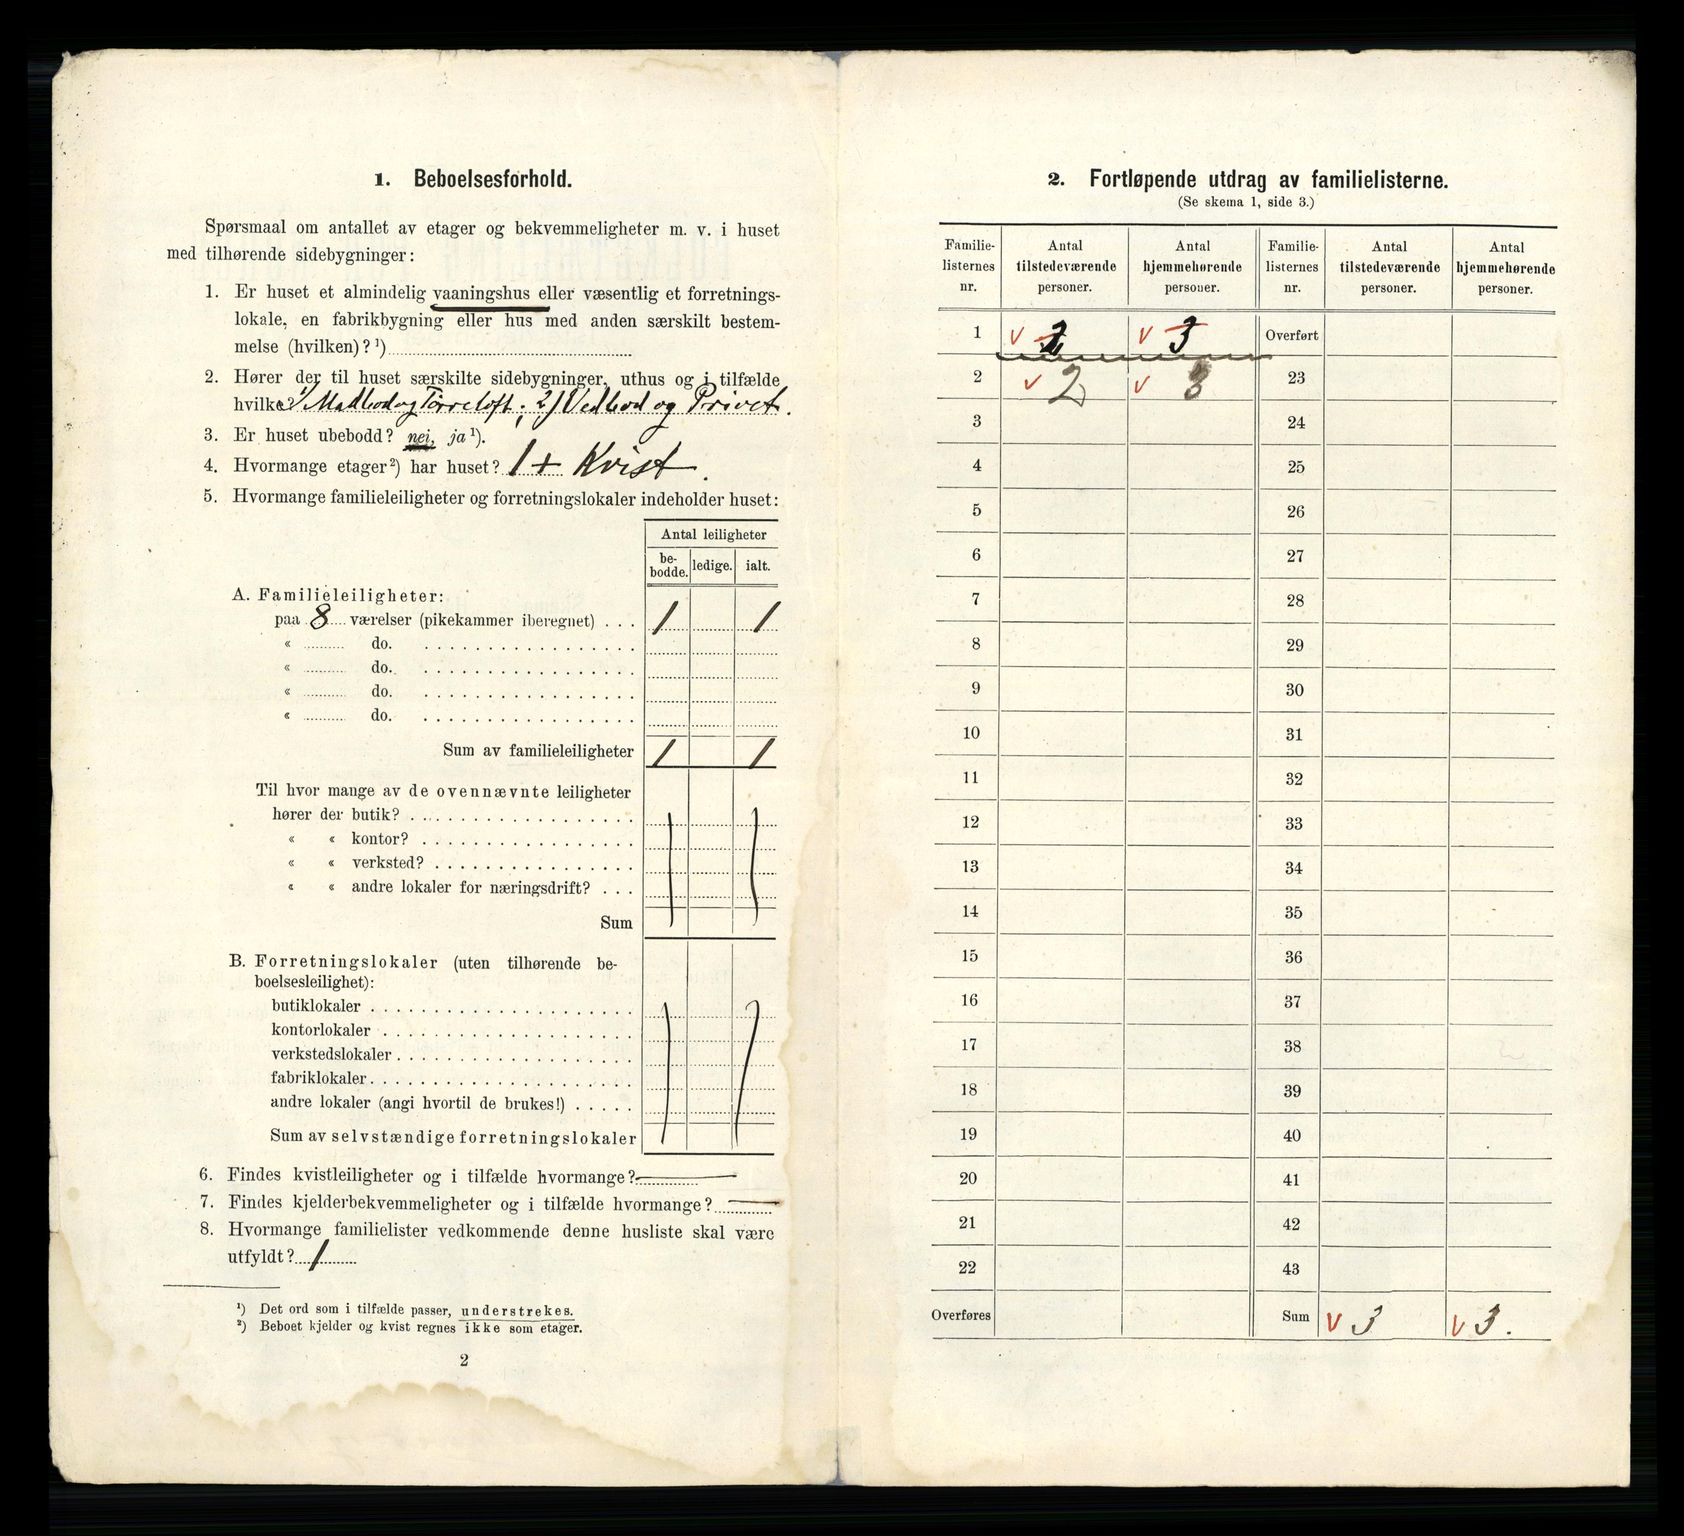 1. Beboelsesforhold.
Spørsmaal om antallet av etager og bekvemmeligheter m. v. i huset
med tilhørende sidebygninger:
1. Er huset et almindelig vaaningshus eller væsentlig et forretnings-
lokale, en fabrikbygning eller hus med anden særskilt bestem-
melse (hvilken)? ¹)
2. Hører der til huset særskilte sidebygninger, uthus og i tilfælde
hvilke? 1/ Madbod og Tørreloft; 2) Vedbod og Privet.
3. Er huset ubebodd? nei, ja ¹).
4. Hvormange etager ²) har huset? 1 + Kvist.
5. Hvormange familieleiligheter og forretningslokaler indeholder huset:
Antal leiligheter
be-
bodde. ledige. ialt.
A. Familieleiligheter:
paa 8 værelser (pikekammer iberegnet) . . . 1 1
« do.
« do.
« do.
« do.
Sum av familieleiligheter 1 1
Til hvor mange av de ovennævnte leiligheter
hører der butik?
« « kontor?
« « verksted?
« « andre lokaler for næringsdrift?
Sum
B. Forretningslokaler (uten tilhørende be-
boelsesleilighet):
butiklokaler
kontorlokaler
verkstedslokaler
fabriklokaler
andre lokaler (angi hvortil de brukes!)
Sum av selvstændige forretningslokaler
6. Findes kvistleiligheter og i tilfælde hvormange? —
7. Findes kjelderbekvemmeligheter og i tilfælde hvormange? —
8. Hvormange familielister vedkommende denne husliste skal være
utfyldt? 1
¹) Det ord som i tilfælde passer, understrekes.
²) Beboet kjelder og kvist regnes ikke som etager.
2
2. Fortløpende utdrag av familielisterne.
(Se skema 1, side 3.)
Familie- Antal Antal Familie- Antal Antal
listernes tilstedeværende hjemmehørende listernes tilstedeværende hjemmehørende
nr. personer. personer. nr. personer. personer.
1 v v 3 Overført
2 v 2 v 3 23
3 24
4 25
5 26
6 27
7 28
8 29
9 30
10 31
11 32
12 33
13 34
14 35
15 36
16 37
17 38
18 39
19 40
20 41
21 42
22 43
Overføres Sum v 3 v 3.